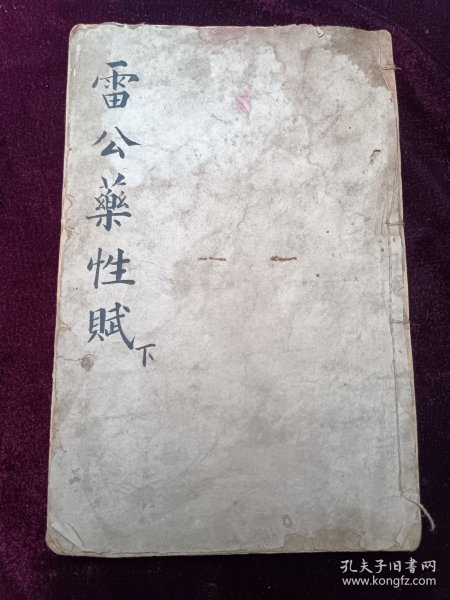 雷公藥性賦
下
孔夫子旧书网
www.kongfz.com